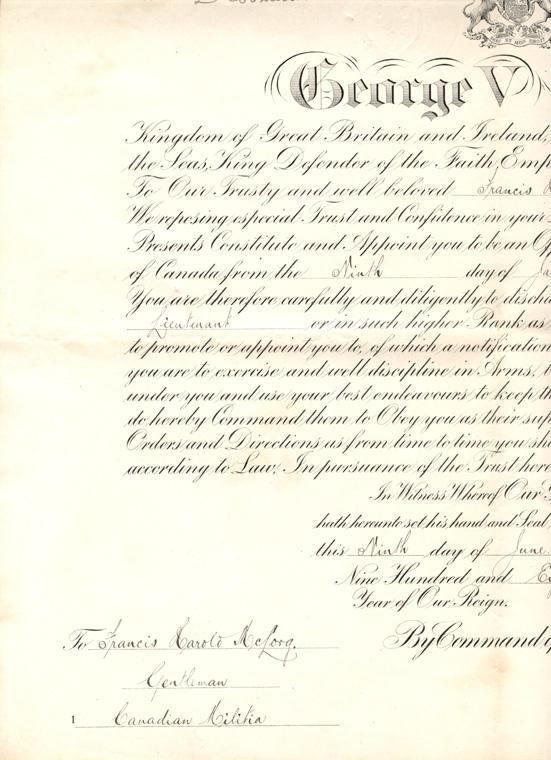 George V
Kingdom of Great Britain and Ireland,
the Seas, King Defender of the Faith, Emp
To Our Trusty and well beloved Francis
We reposing especial Trust and Confidence in your
Presents Constitute and Appoint you to be an Of
of Canada from the Ninth day of Ja
You are therefore carefully and diligently to disch
Lieutenant or in such higher Rank as
to promote or appoint you to, of which a notification
you are to exercise and well discipline in Arms,
under you and use your best endeavours to keep th
do hereby Command them to Obey you as their sup
Orders and Directions as from time to time you sh
according to Law. In pursuance of the Trust here
In Witness Whereof Our
hath hereunto set his hand and Seal
this Ninth day of June
Nine Hundred and
Year of Our Reign.
By Command of
To Francis Harold
Gentleman
1 Canadian Militia